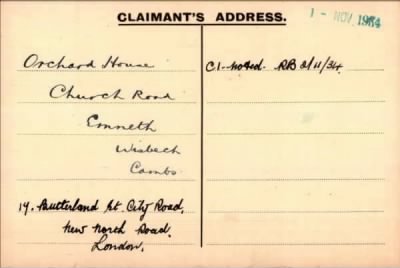 CLAIMANT'S ADDRESS.
1 - NOV 1934
Orchard House
C1. noted. RB 2/11/34.
Church Road
Emneth
Wisbech
Cambs.
14. Butterland St. City Road,
New North Road,
London.